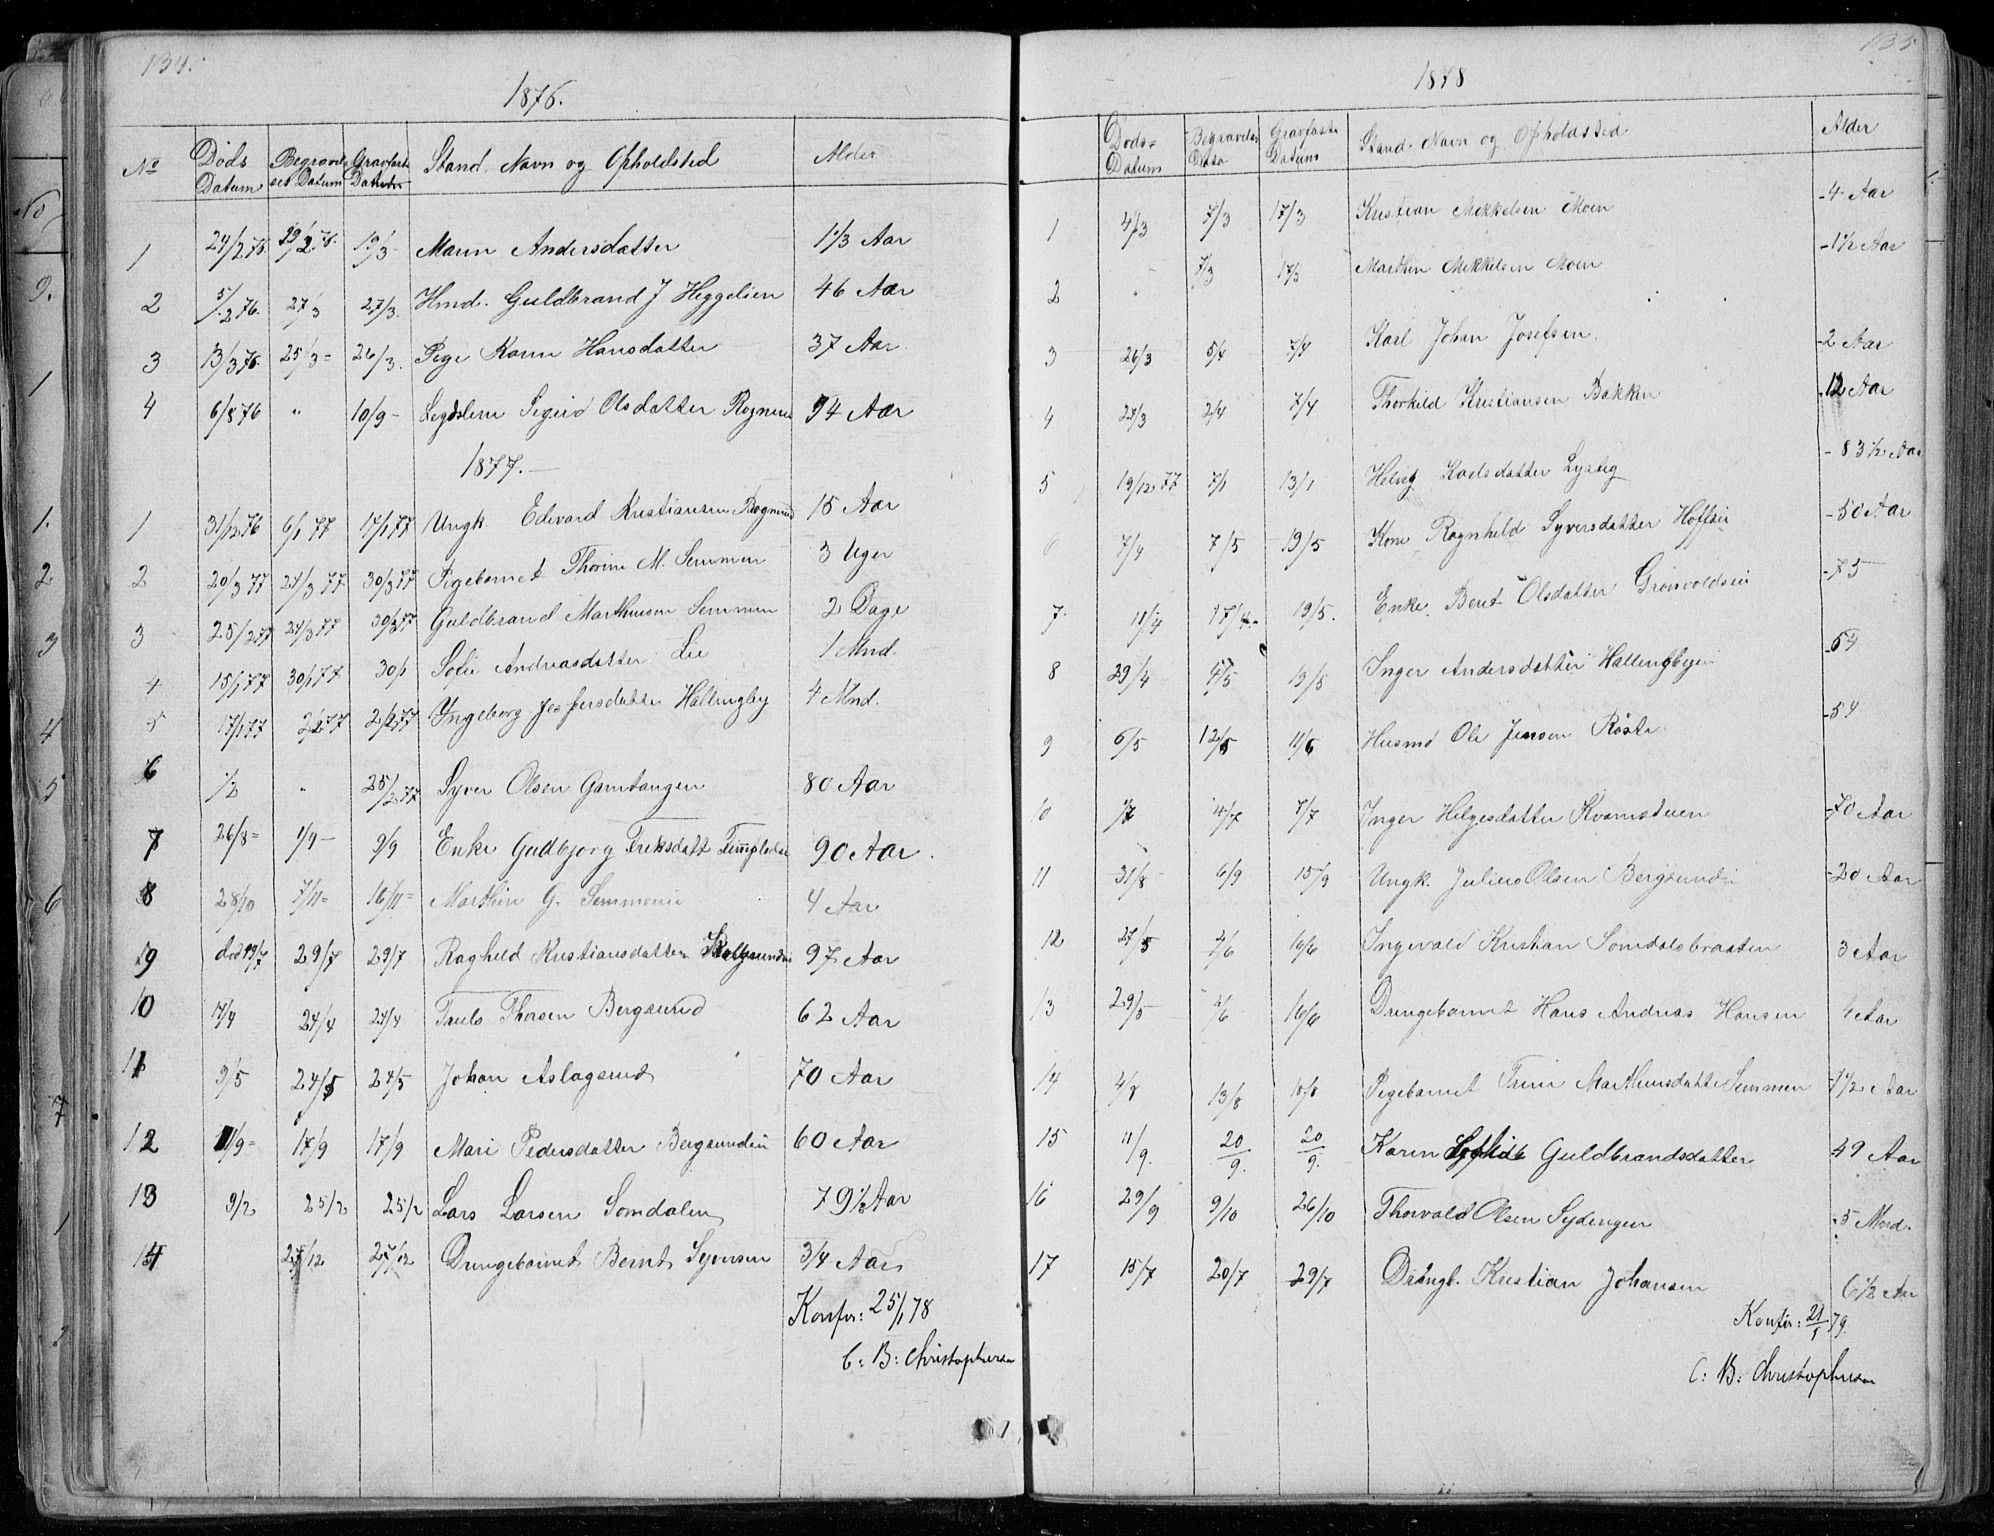 134.
1876.
No Døds Datum Begravel- ses Datum Gravfæst Datum Stand, Navn og Opholdsted Alder
1 24/2 76. 29/2.76. 19/3- Maren Andersdatter 1 1/3 Aar
2 5/2 76. 27/3 27/3. Hmd. Guldbrand J Heggelien 46 Aar
3 13/3 76. 25/3= 26/3. Pige Karen Hansdatter 37 Aar
4 6/8 76 " 10/9- Lægdslem Sigrid Olsdatter Rognerud 94 Aar
1877.-
1 31/12 76 6/1 77 17/1 77 Ungk. Edvard Kristiansen Rognerud 15 Aar
2 20/3 77 24/3 77. 30/3 77 Pigebarnet Thorine M. Semmen 3 Uger
3 25/2 77 24/3 77 30/3 77 Guldbrand Marthinsen Semmen 2 Dage
4 15/1 77 30/1 77 30/1 Sofie Andreasdatter Lie 1 Mnd.
5 17/1 77 2/2 77 2/2 77 Ingeborg Jespersdatter Hallingby 4 Mnd.
6 1/2 " 25/2 77 Syver Olsen Gamtangen 80 Aar
7 26/8= 1/9- 9/9 Enke Guldbjørg Eriksdatt 90 Aar.
8 28/10 7/11= 16/11= Marthin G. Semmeneie 4 Aar
9 død 19/7 29/7 29/7 Raghild Kristiansdatter 97 Aar
10 17/4 24/4 24/4 Truls Thorsen Bergsund 62 Aar
11 9/5 24/5 24/5 Johan Aslagsrud 70 Aar
12 11/9= 17/9 17/9 Mari Pedersdatter Bergsundeie 60 Aar
13 9/2 25/2 25/2 Lars Larsen Somdalen 79 1/2 Aar
14 27/12 27/12 Drengebarnet Bernt Syversen 3/4 Aar
Konfer: 25/1 78
C: B: Christophersen
135
1878
Døds= Datum Begravelses Datum Gravfæste Datum Stand. Navn og Opholdsted Alder
1 4/3 7/3 17/3 Kristian Mikkelsen Moen -4 Aar
2 " 7/3 17/3 Marthin Mikkelsen Moen -1 1/2 Aar
3 26/3 5/4 7/4 Karl Johan Josefsen. -2 Aar
4 24/3 2/4 7/4 Thorkild Kristiansen Bakken 12 Aar
5 19/12 77 7/1 13/1 Helvig Karlsdatter Lystig -83 1/2 Aar
6 7/4 7/5 19/5 Kone Ragnhild Syversdatter Hofseie -50 Aar
7. 11/4 17/4- 19/5. Enke. Berit Olsdatter Grønvoldseie -75
8 29/4 4/5 19/5 Inger Andersdatter Hallingbyeie -64
9 6/5 12/5 11/6 Husmd Ole Jensen Røste -54
10 1/7 4/7 7/7 Inger Helgesdatter Kvamstuen -70 Aar
11 31/8 6/9 15/9 Ungk. Julius Olsen Bergsundeie -20 Aar
12 27/5 2/6 16/6 Ingevald Kristian Somdalsbraaten 3 Aar
13 29/5 2/6 16/6 Drengebarnet Hans Andreas Hansen 4 Aar
14 4/8 13/8 18/8 Pigebarnet Trine Marthinsdatter Semmen 1 1/2 Aar
15 11/9. 20/9. 20/9. Karen Guldbrandsdatter 49 Aar
16 29/9 9/10 26/10 Thorvald Olsen Sydengen 5 Mnd.
17 15/7 20/7 29/7 Drengb. Kristian Johansen 6 1/2 Aar
Konfer: 21/1 79.
C: B: Christophersen